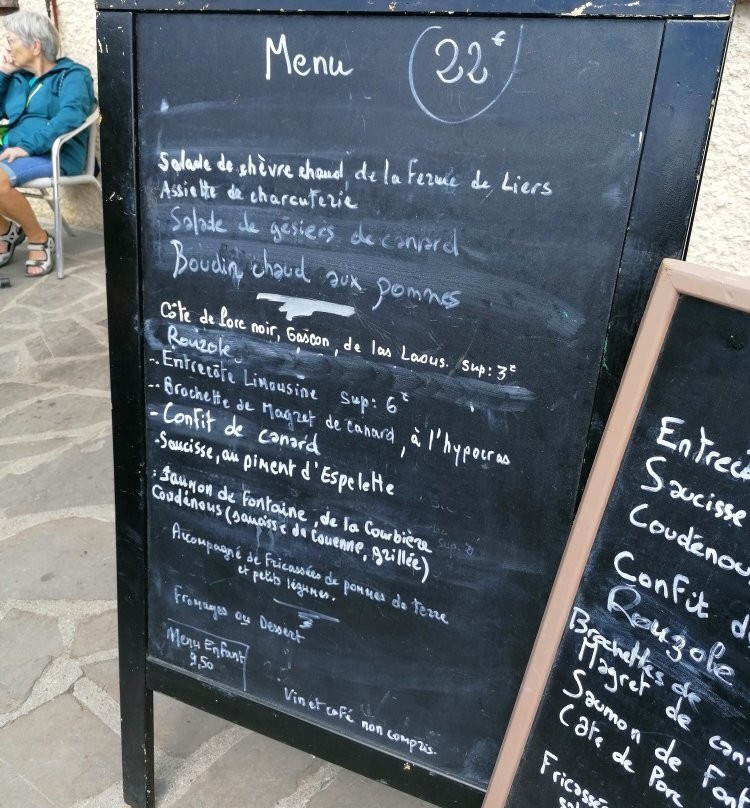 Menu 22€
Salade de chèvre chaud, de la Ferme de Liers
Assiette de charcuterie
Salade de gésiers de canard
Boudin chaud aux pommes
Côte de Porc noir, Gascon, de las Laous. sup: 3€
Rouzole
-. Entrecôte Limousine sup: 6€
-. Brochette de Magret de canard, à l'hypocras
- Confit de canard
- Saucisse, au piment d'Espelette
: Saumon de Fontaine, de la Courbière
Coudénous (saucisse de Couenne, grillée)
Accompagné de Fricassées de pommes de terre
et petits légumes.
Fromages ou Dessert
Menu Enfant
9,50
Vin et café non compris.
Entrecô
Saucisse
Coudénou
Confit d
Rouzole
Brochettes de
Magret de can
Saumon de Font
Côte de Porc
Fricassé